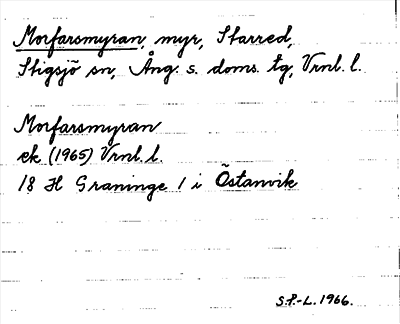 Morfarsmyran, myr, Starred,
Stigsjö sn, Ång. s. doms. tg, Vrnl. l.
Morfarsmyran
ek (1965) Vrnl. l.
18 H Graninge 1 i Östanvik
S.P.-L. 1966.